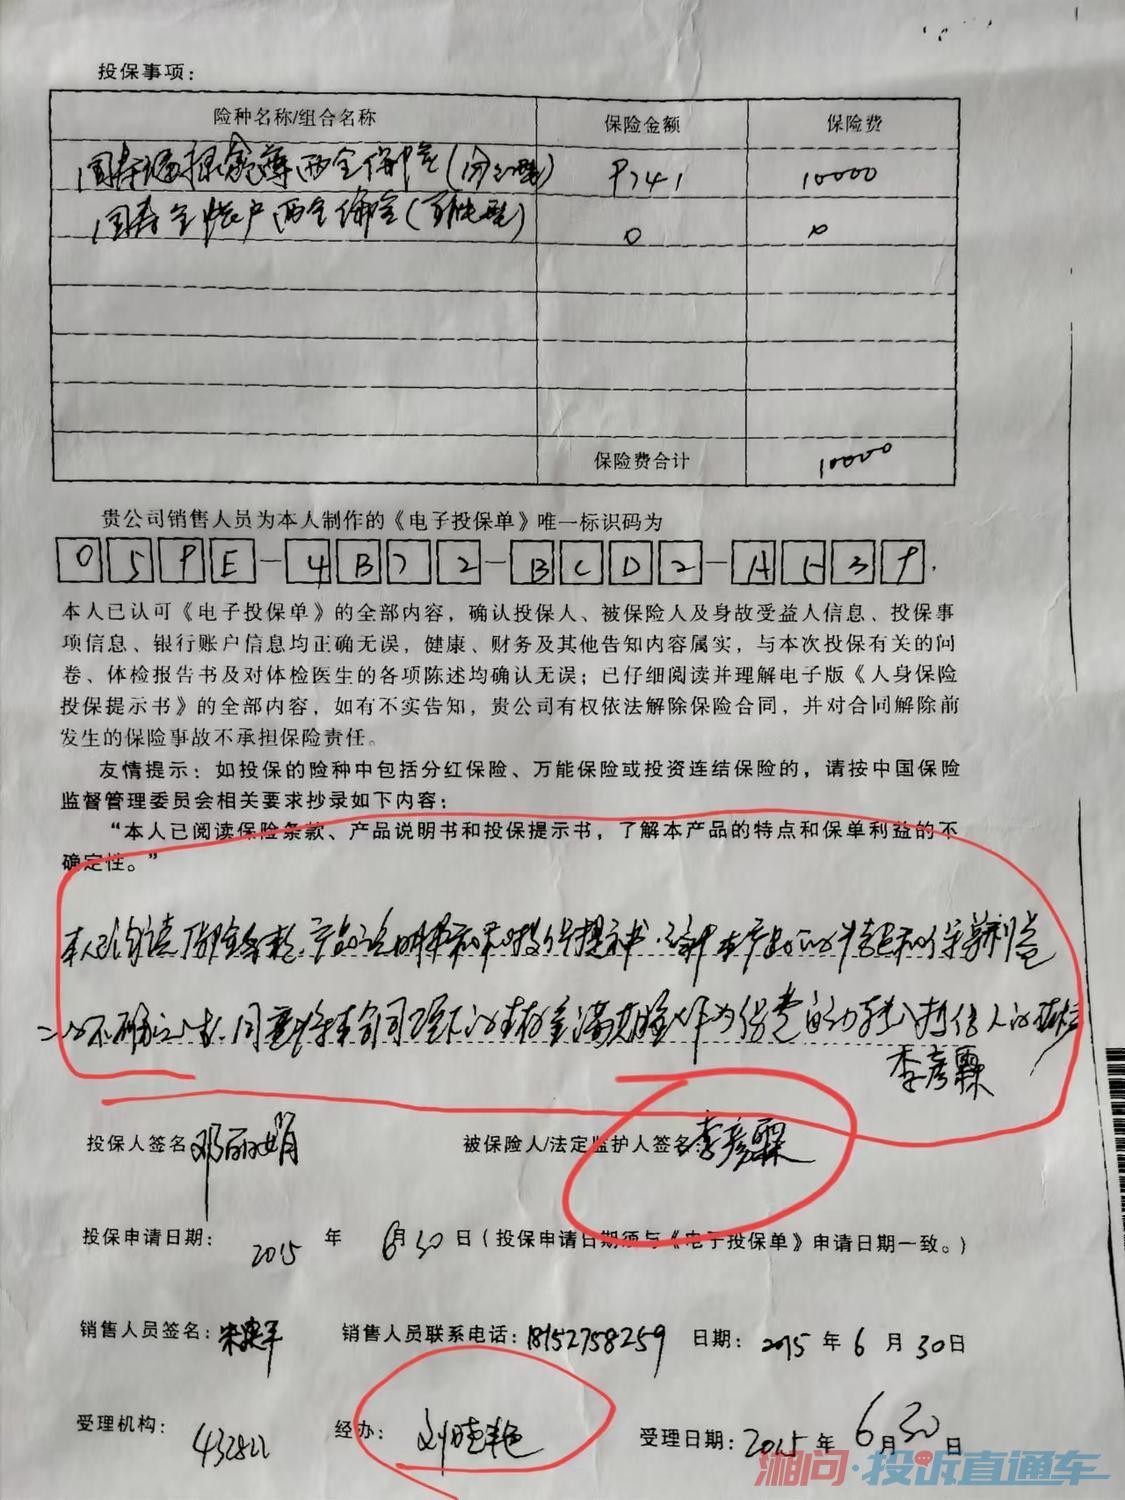 投保事项：
险种名称/组合名称 保险金额 保险费
国寿瑞鑫两全保险（分红型） 9741 10000
国寿金账户两全保险（万能型） 0 0
保险费合计 10000
贵公司销售人员为本人制作的《电子投保单》唯一标识码为
本人已认可《电子投保单》的全部内容，确认投保人、被保险人及身故受益人信息、投保事
项信息、银行账户信息均正确无误，健康、财务及其他告知内容属实，与本次投保有关的问
卷、体检报告书及对体检医生的各项陈述均确认无误；已仔细阅读并理解电子版《人身保险
投保提示书》的全部内容，如有不实告知，贵公司有权依法解除保险合同，并对合同解除前
发生的保险事故不承担保险责任。
友情提示：如投保的险种中包括分红保险、万能保险或投资连结保险的，请按中国保险
监督管理委员会相关要求抄录如下内容：
“本人已阅读保险条款、产品说明书和投保提示书，了解本产品的特点和保单利益的不
确定性。”
本人已阅读保险条款、产品说明书和投保提示书，了解本产品的特点和保单利益
的不确定性，同意将本合同项下的生存金满期金作为保费自动转入
李彦霖
投保人签名 邓丽娟 被保险人/法定监护人签名 李彦霖
投保申请日期： 2015 年 6月30日（投保申请日期须与《电子投保单》申请日期一致。）
销售人员签名： 销售人员联系电话：18152758259 日期：2015年6月30日
受理机构： 经办： 刘艳 受理日期：2015年6月30日
湘问·投诉直通车